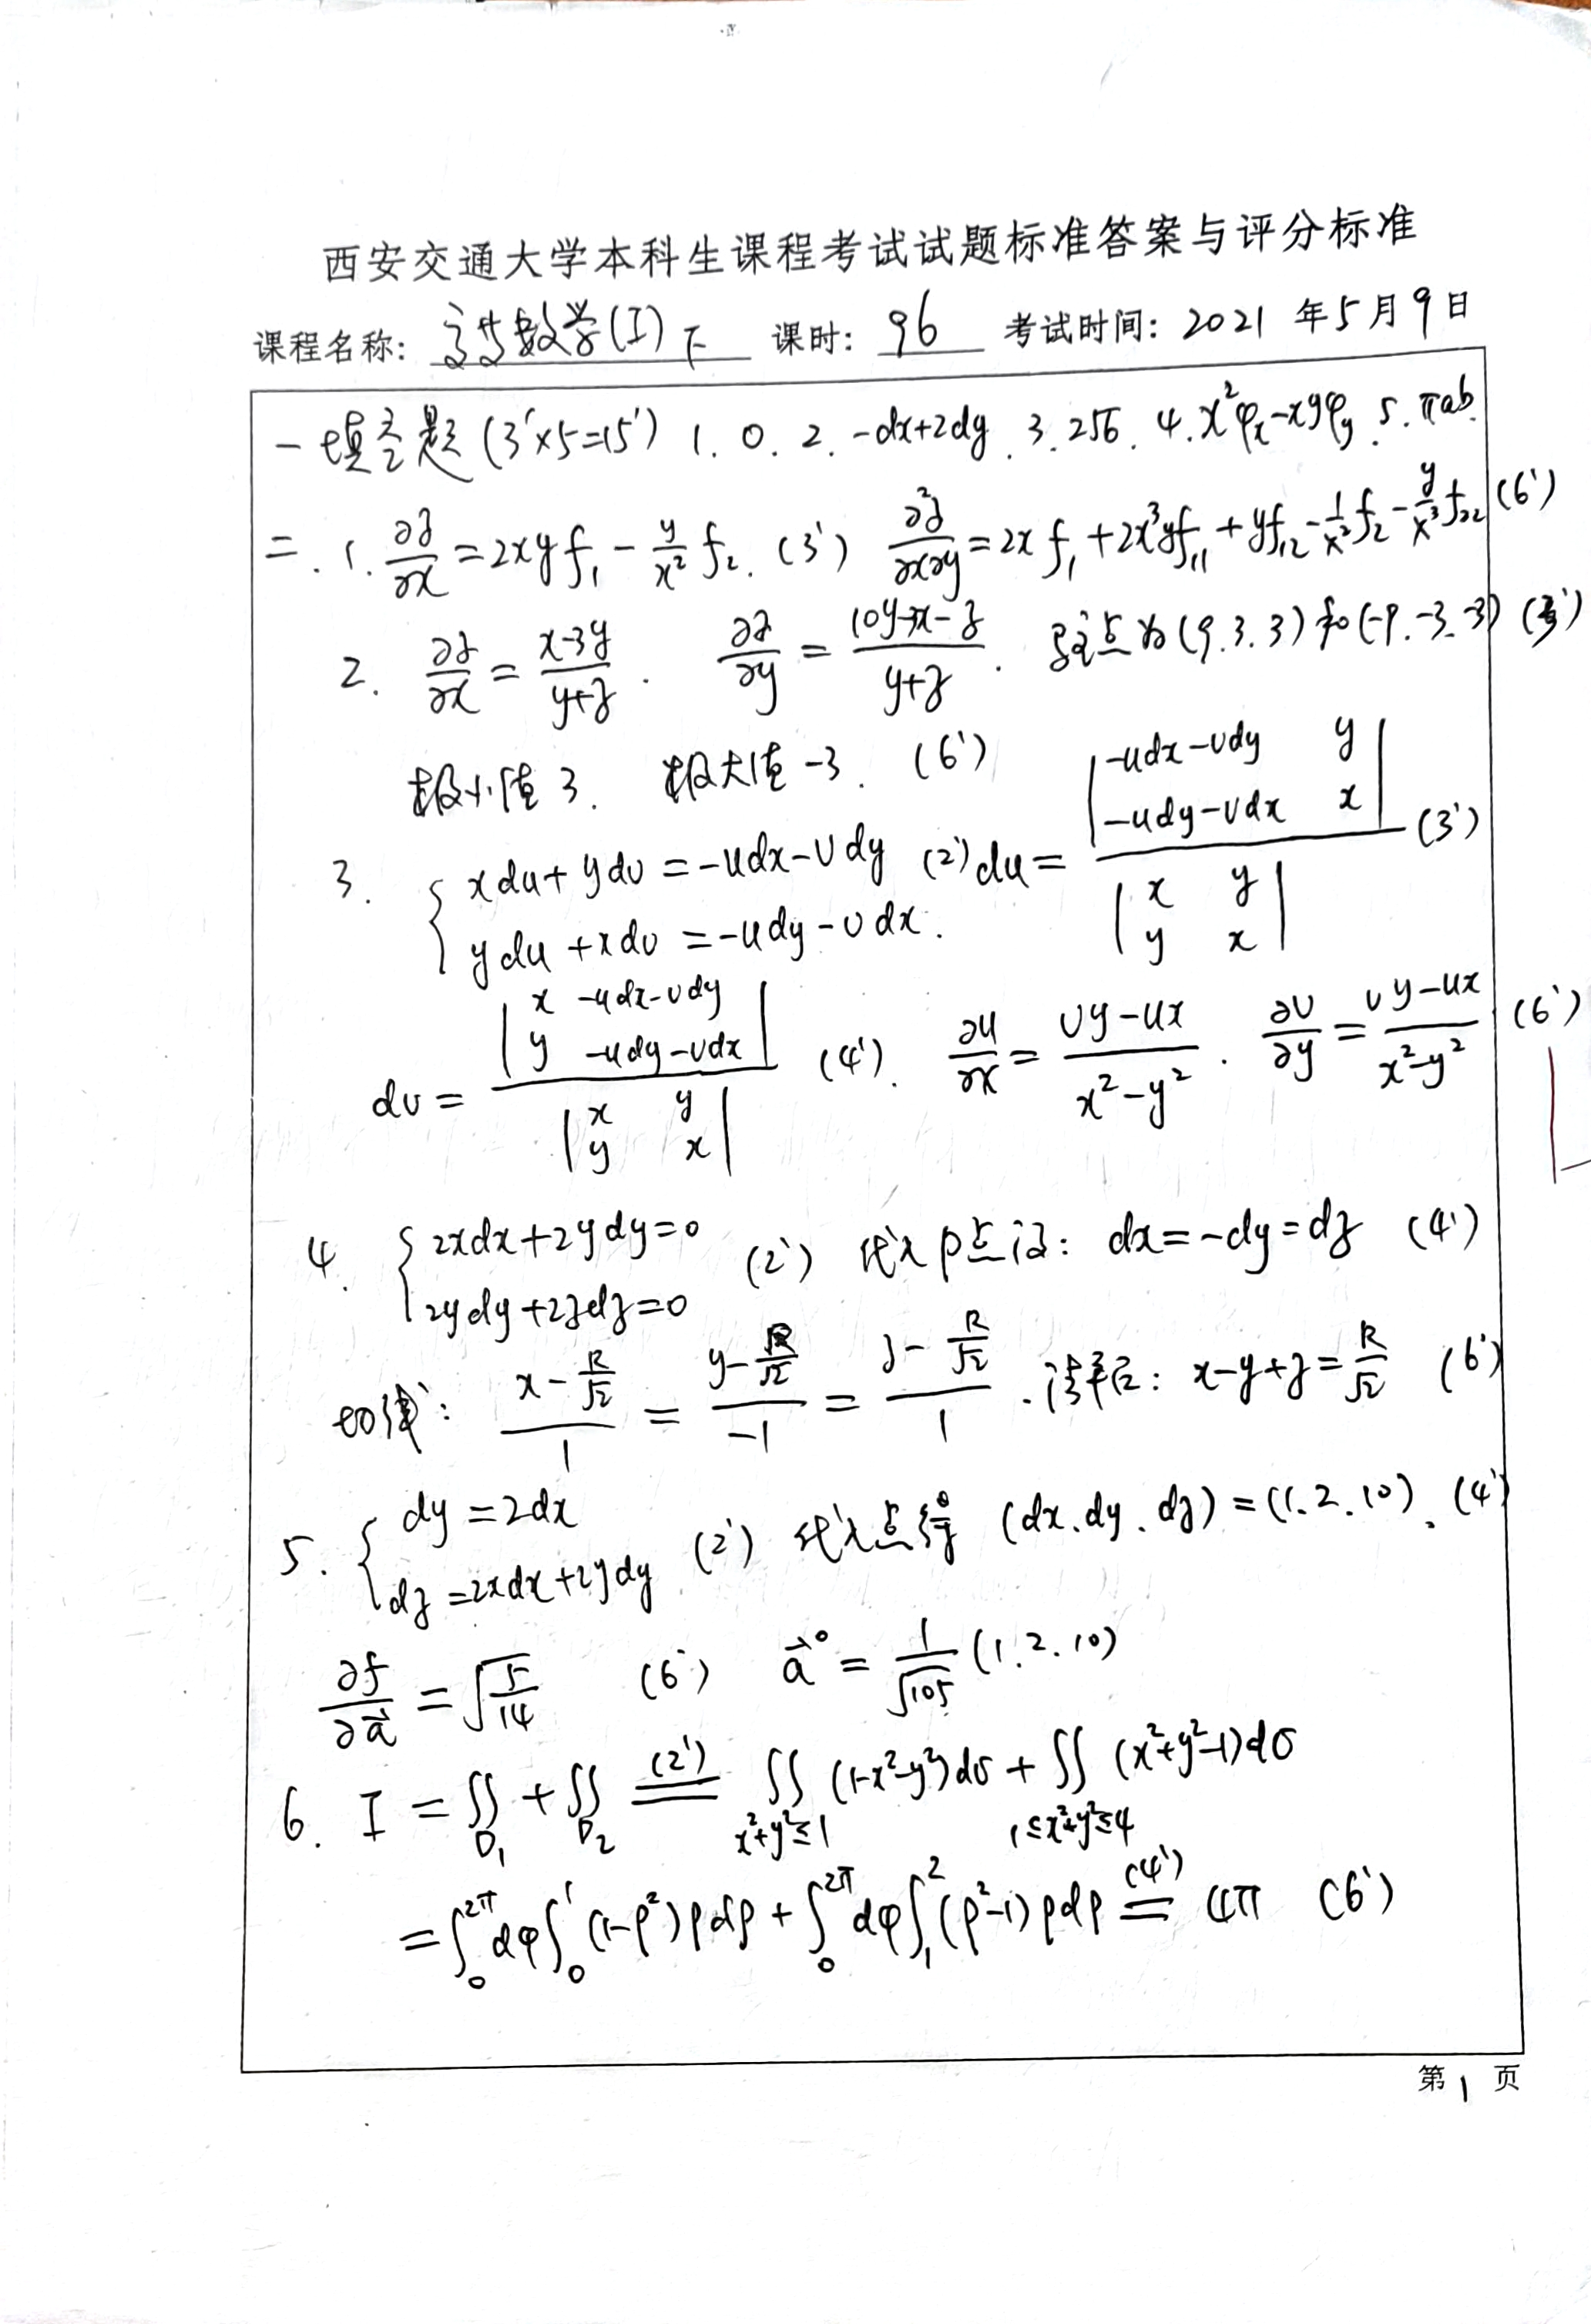 西安交通大学本科生课程考试试题标准答案与评分标准
课程名称: 高等数学(I)下 课时: 96 考试时间: 2021 年5月9日
一填空题(3'×5=15') 1. 0. 2. -dx+2dy. 3. 256. 4. x²φₓ-xyφ_y. 5. πab.
二. 1. ∂z/∂x = 2xyf₁ - y/x² f₂. (3') ∂²z/∂x∂y = 2xf₁+2x³yf₁₁+yf₁₂-1/x² f₂-y/x³ f₂₂ (6')
2. ∂z/∂x = (x-3y)/(y+z). ∂z/∂y = (10y-3x-z)/(y+z). 驻点为(9.3.3)和(-9.-3.-3) (3')
极小值3. 极大值-3. (6')
3. { xdu+ydv=-udx-vdy (2') du = |-udx-vdy y; -udy-vdx x| / |x y; y x| (3')
ydu+xdv=-udy-vdx.
dv = |x -udx-vdy; y -udy-vdx| / |x y; y x| (4'). ∂u/∂x = (vy-ux)/(x²-y²). ∂v/∂y = (vy-ux)/(x²-y²). (6')
4. { 2xdx+2ydy=0 (2') 代入P点得: dx=-dy=dz (4')
2ydy+2zdz=0
切线: (x-R/√2)/1 = (y-R/√2)/-1 = (z-R/√2)/1. 法平面: x-y+z=R/√2 (6')
5. { dy=2dx (2') 代入点得 (dx.dy.dz)=(1.2.10). (4')
dz=2xdx+2ydy
∂f/∂a⃗ = √(5/14) (6') a⃗° = 1/√105 (1.2.10)
6. I = ∬_D₁ + ∬_D₂ =(2') ∬_{x²+y²≤1} (1-x²-y²)dσ + ∬_{1≤x²+y²≤4} (x²+y²-1)dσ
= ∫₀^2π dφ∫₀^1 (1-ρ²)ρdρ + ∫₀^2π dφ∫₁^2 (ρ²-1)ρdρ =(4') 4π (6')
第 1 页